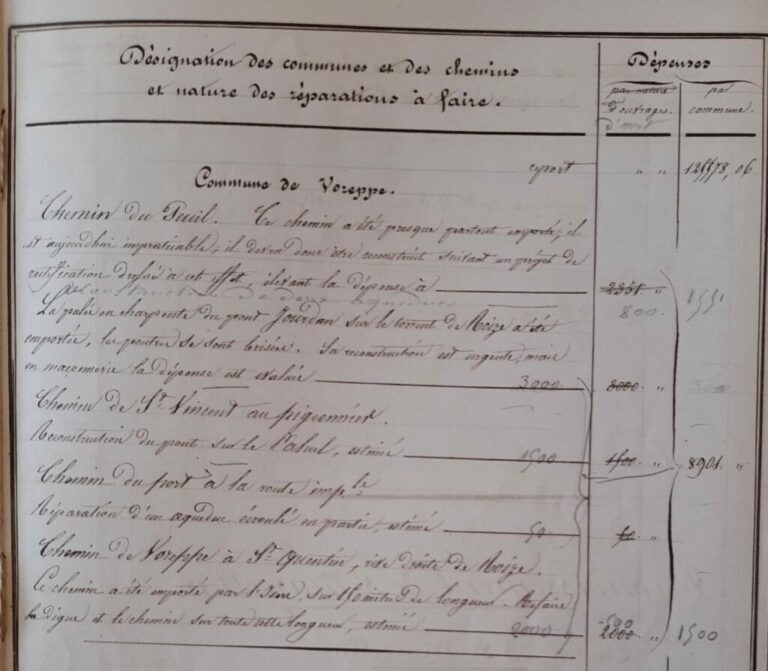 Désignation des communes et des chemins
et nature des réparations à faire.
Dépenses
par nature
d'ouvrages.
d'art
par
commune.
report " " 06
Commune de Voreppe.
Chemin du Peuil. Ce chemin a été presque partout emporté; il
est aujourd'hui impraticable; il devra donc être reconstruit suivant un projet de
rectification dressé à cet effet, élevant la dépense à 2351 "
800.
Reconstruction de deux aqueducs
La palée en charpente du pont Jourdan sur le torrent de Roize a été
emportée, les poutres se sont brisées. Sa reconstruction est urgente; mais
en maçonnerie la dépense est évaluée 3000 3000 "
Chemin de St. Vincent au pigeonnier.
Reconstruction du pont sur le estimé 1500 1500 " 8901 "
Chemin du port à la route imple
Réparation d'un aqueduc écroulé en partie, estimé 50 50 "
Chemin de Voreppe à St. Quentin, rive droite de Roize.
Ce chemin a été emporté par l'Isère, sur 150 mètres de longueur. Refaire
la digue et le chemin sur toute cette longueur, estimé 2000 2000 " 1500
500